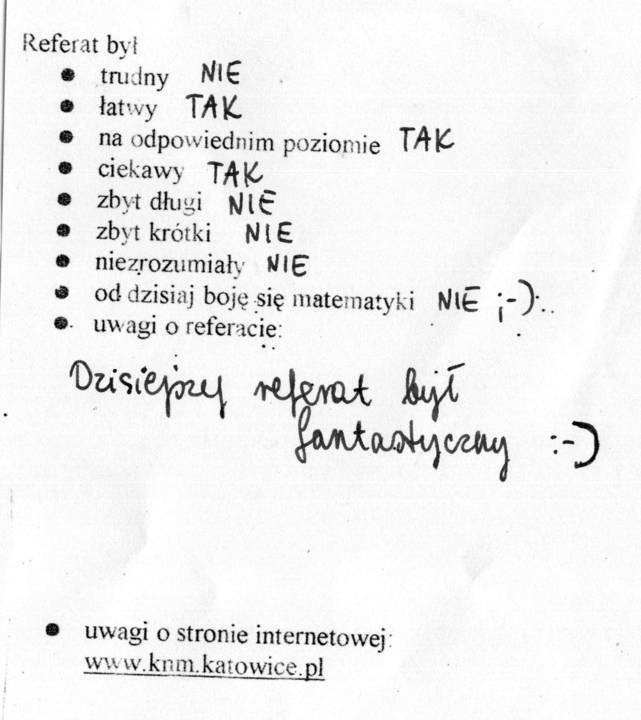 Referat był
• trudny NIE
• łatwy TAK
• na odpowiednim poziomie TAK
• ciekawy TAK
• zbyt długi NIE
• zbyt krótki NIE
• niezrozumiały NIE
• od dzisiaj boję się matematyki NIE ;-)
• uwagi o referacie:
Dzisiejszy referat był
fantastyczny :-)
• uwagi o stronie internetowej:
www.knm.katowice.pl